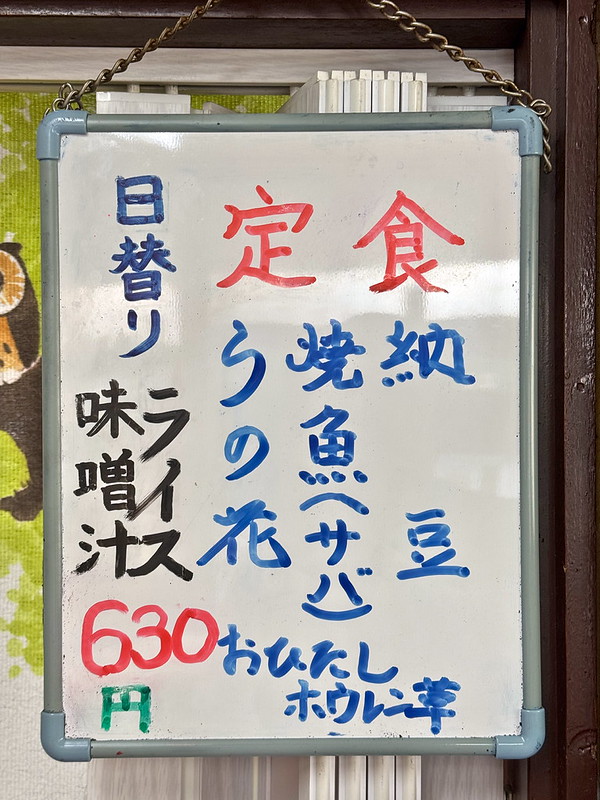 定食
納豆
焼魚(サバ)
うの花
おひたし
ホウレン草
日替り
ライス
味噌汁
630
円